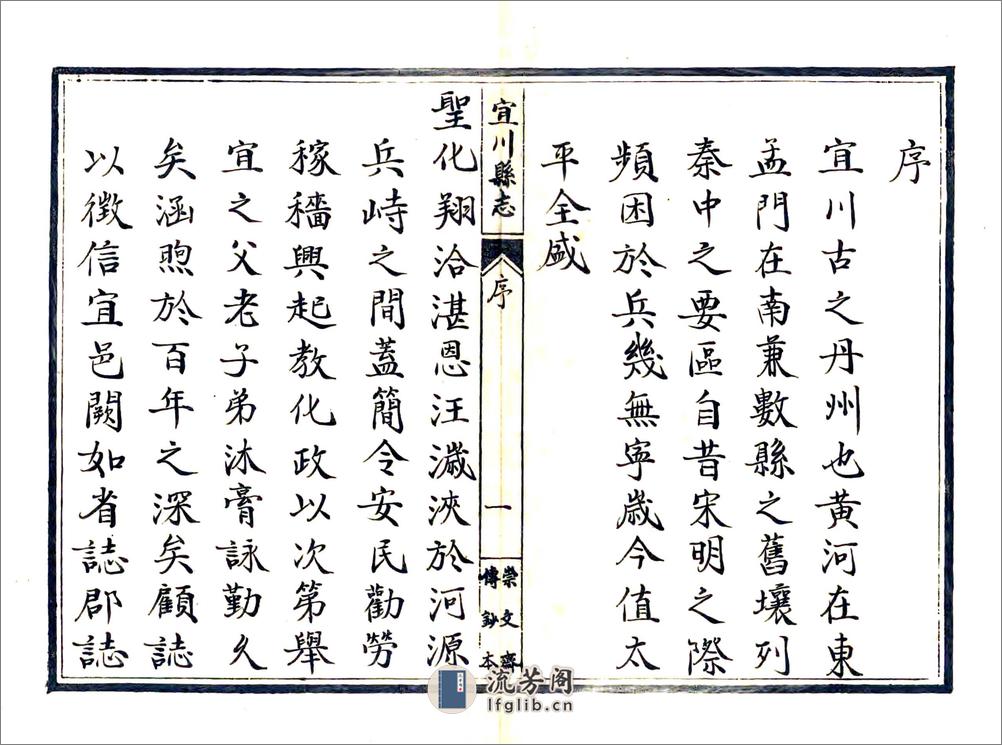 序
宜川古之丹州也黄河在東
孟門在南兼數縣之舊壤列
秦中之要區自昔宋明之際
頻困於兵幾無寧歲今值太
平全盛
宜川縣志
序
一
崇文齋
傳鈔本
聖化翔洽湛恩汪濊浹於河源
兵峙之間蓋簡令安民勸勞
稼穡興起教化政以次第舉
宜之父老子弟沐膏詠勤久
矣涵煦於百年之深矣顧誌
以徵信宜邑闕如省誌郡誌
流芳阁
lfglib.cn